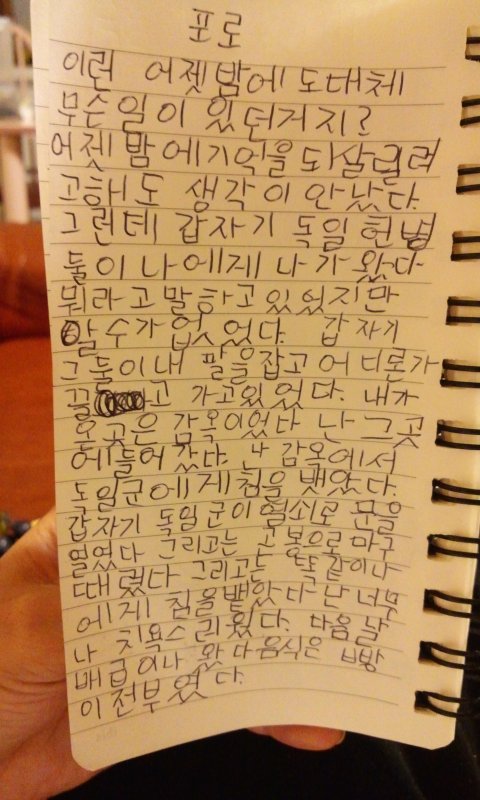 포로
이런 어젯밤에 도대체
무슨일이 있던거지?
어젯밤에 기억을 되살릴려
고해도 생각이 안났다.
그런데 갑자기 독일 헌병
둘이 나에게 나가왔다
뭐라고 말하고 있었지만
알수가 없었다. 갑자기
그둘이 내 팔을잡고 어디론가
끌고 가고있었다. 내가
온곳은 감옥이었다 난 그곳
에들어 갔다. 난 감옥에서
독일군에게 침을 뱃았다.
갑자기 독일군이 혐쇠로 문을
열였다 그리고는 곤봉으로 마구
때렸다 그리고는 똑같이나
에게 침을뱉았다 난 너무
나 치욕스러웠다. 다음날
배급이나 왔다 음식은 빵
이전부였다.